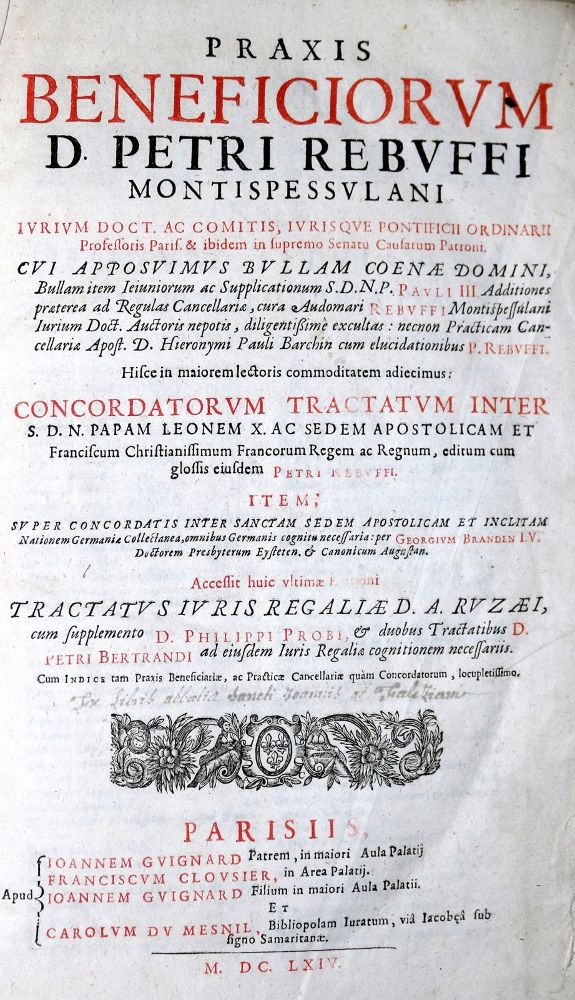 PRAXIS
BENEFICIORVM
D. PETRI REBVFFI
MONTISPESSVLANI
IVRIVM DOCT. AC COMITIS, IVRISQVE PONTIFICII ORDINARII
Professoris Paris. & ibidem in supremo Senatu Causarum Patroni.
CVI APPOSVIMVS BVLLAM COENÆ DOMINI,
Bullam item Ieiuniorum ac Supplicationum S.D.N.P. PAVLI III Additiones
præterea ad Regulas Cancellariæ, cura Audomari REBVFFI Montispessulani
Iurium Doct. Auctoris nepotis, diligentissime excultas: necnon Practicam Can-
cellariæ Apost. D. Hieronymi Pauli Barchin cum elucidationibus P. REBVFFI.
Hisce in maiorem lectoris commoditatem adiecimus:
CONCORDATORVM TRACTATVM INTER
S. D. N. PAPAM LEONEM X. AC SEDEM APOSTOLICAM ET
Franciscum Christianissimum Francorum Regem ac Regnum, editum cum
glossis eiusdem PETRI REBVFFI.
ITEM,
SVPER CONCORDATIS INTER SANCTAM SEDEM APOSTOLICAM ET INCLITAM
Nationem Germaniæ Collectanea, omnibus Germanis cognitu necessaria: per GEORGIVM BRANDEN I.V.
Doctorem Presbyterum Eysteten. & Canonicum Augustan.
Accessit huic vltimæ
TRACTATVS IVRIS REGALIÆ D. A. RVZÆI,
cum supplemento D. PHILIPPI PROBI, & duobus Tractatibus D.
PETRI BERTRANDI ad eiusdem Iuris Regaliæ cognitionem necessariis.
Cum INDICE tam Praxis Beneficiariæ, ac Practicæ Cancellariæ quàm Concordatorum, locupletissimo.
Ex libris abbatiæ Sancti Joannis
PARISIIS,
Apud
IOANNEM GVIGNARD Patrem, in maiori Aula Palatij
FRANCISCVM CLOVSIER, in Area Palatij.
IOANNEM GVIGNARD Filium in maiori Aula Palatii.
ET
CAROLVM DV MESNIL, Bibliopolam Iuratum, viâ Iacobęâ sub
signo Samaritanæ.
M. DC. LXIV.